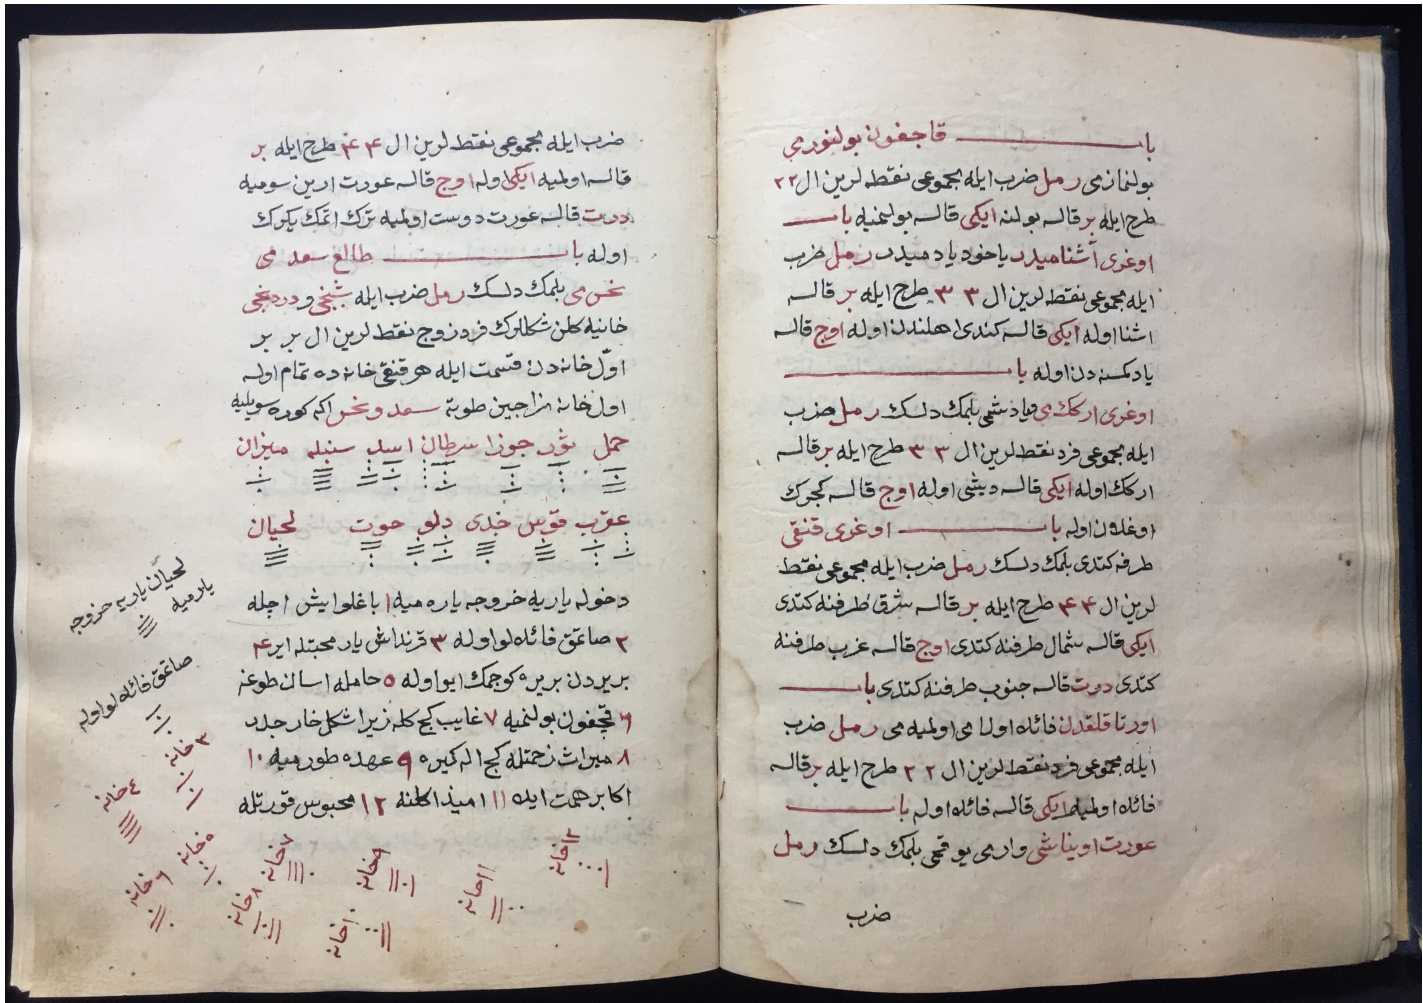 باب قاچغون بولنورمی
بولنمازمی رمل ضرب ایله مجموعی نقط لرین ال ۲۲
طرح ایله بر قالسه بولنه ایکی قالسه بولنمیه باب
اوغری آشنامیدر یاخود یادمیدر رمل ضرب
ایله مجموعی نقط لرین ال ۳ ۳ طرح ایله بر قالسه
اشنا اوله ایکی قالسه کندی اهلندن اوله اوچ قالسه
یاد کمسنه دن اوله باب
اوغری ارککمی ویا دیشیمی بلمک دلسک رمل ضرب
ایله مجموعی فرد نقط لرین ال ۳ ۳ طرح ایله بر قالسه
ارکک اوله ایکی قالسه دیشی اوله اوچ قالسه کجرک
اوغلان اوله باب اوغری قنقی
طرفه کتدی بلمک دلسک رمل ضرب ایله مجموعی نقط
لرین ال ۴ ۴ طرح ایله بر قالسه شرق طرفنه کتدی
ایکی قالسه شمال طرفنه کتدی اوچ قالسه غرب طرفنه
کتدی درت قالسه جنوب طرفنه کتدی باب
اورتاقلقدن فائده اولامی اولمیه می رمل ضرب
ایله مجموعی فرد نقط لرین ال ۲ ۲ طرح ایله بر قالسه
فائده اولمیه ایکی قالسه فائده اوله باب
عورت اویناشی وارمی یوقمی بلمک دلسک رمل
ضرب
ضرب ایله مجموعی نقط لرین ال ۴ ۴ طرح ایله بر
قالسه اولمیه ایکی اوله اوچ قالسه عورت ارین سومیه
درت قالسه عورت دوست اولمیه ترک اتمک یکرک
اوله باب طالع سعد می
نحس می بلمک دلسک رمل ضرب ایله بشنجی و دردنجی
خانیه کلن شکللرک فرد زوج نقط لرین ال بر بر
اوّل خانه دن قسمت ایله هر قنقی خانه ده تمام اولسه
اول خانه نزاجین طوبه سعد و نحس اکه کوره سویلیه
حمل ثور جوزا سرطان اسد سنبله میزان
عقرب قوس جدی دلو حوت لحیان
دخوله یاریه خروجه یاره میه ۱ باغلو ایش اچله
۲ صاتمق فائده لو اوله ۳ قرنداش یار محبتله ایر ۴
بریردن بریره کوچمک ایو اوله ۵ حامله اسان طوغه
۶ قچغون بولنمیه ۷ غایب کج کله زیرا شکل خارجدر
۸ میراث زحمتله کج اله کیره ۹ عهده طورمیه ۱۰
اکابر همت ایده ۱۱ امیذ اکلنه ۱۲ محبوس قورتله
لحیان یاریه خروجه
یارمیه
صاتمق فائده لو اوله
۳ خانه
٤ خانه
۵ خانه
۶ خانه
۷ خانه
۸ خانه
۹ خانه
۱۰ خانه
۱۱ خانه
۱۲ خانه